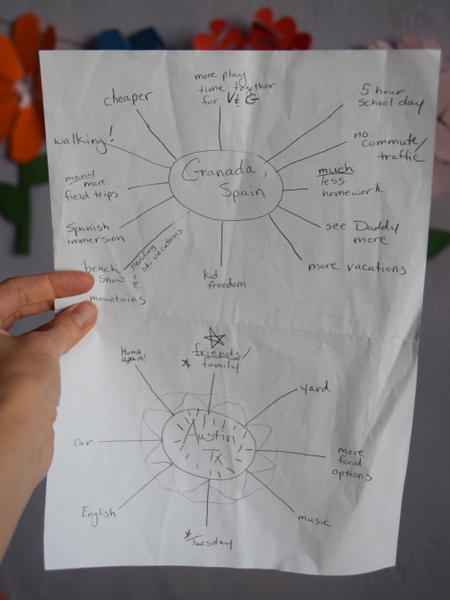 more play
time together
for V & G
cheaper
5 hour
school day
walking!
no
commute/
traffic
Granada,
Spain
many
more
field trips
much
less
homework
Spanish
immersion
see Daddy
more
beach
snow &
mountains
ski vacations
kid
freedom
more vacations
Home
again!
friends/
family
yard
car
Austin
TX
more
food
options
English
music
Tuesday